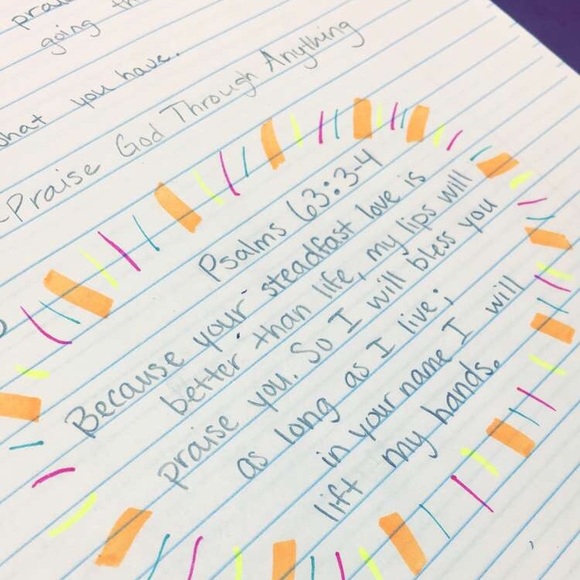 going th
what you have.
-Praise God Through Anything
Psalms 63:3-4
Because your steadfast love is
better than life, my lips will
praise you. So I will bless you
as long as I live;
in your name I will
lift my hands.